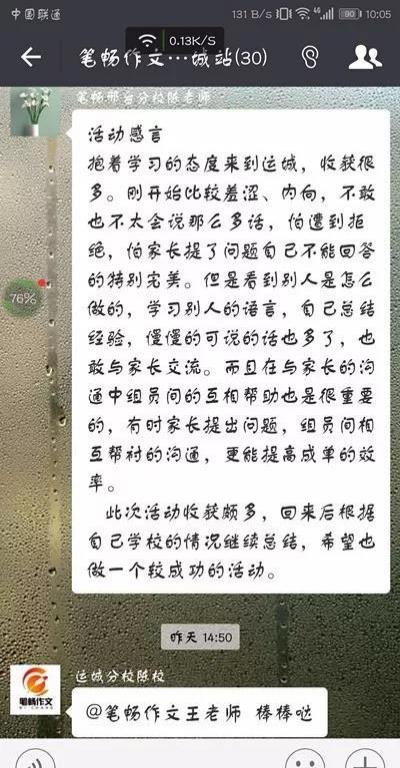 中国联通 131 B/s 4G 90 10:05
0.13K/S
笔畅作文…城站(30)
笔畅邢台分校陈老师
活动感言
抱着学习的态度来到运城，收获很
多。刚开始比较羞涩、内向，不敢
也不太会说那么多话，怕遭到拒
绝，怕家长提了问题自己不能回答
的特别完美。但是看到别人是怎么
做的，学习别人的语言，自己总结
经验，慢慢的可说的话也多了，也
敢与家长交流。而且在与家长的沟
通中组员间的互相帮助也是很重要
的，有时家长提出问题，组员间相
互帮衬的沟通，更能提高成单的效
率。
此次活动收获颇多，回来后根据
自己学校的情况继续总结，希望也
做一个较成功的活动。
76%
昨天 14:50
运城分校陈校
笔畅作文
BI CHANG
@笔畅作文王老师 棒棒哒